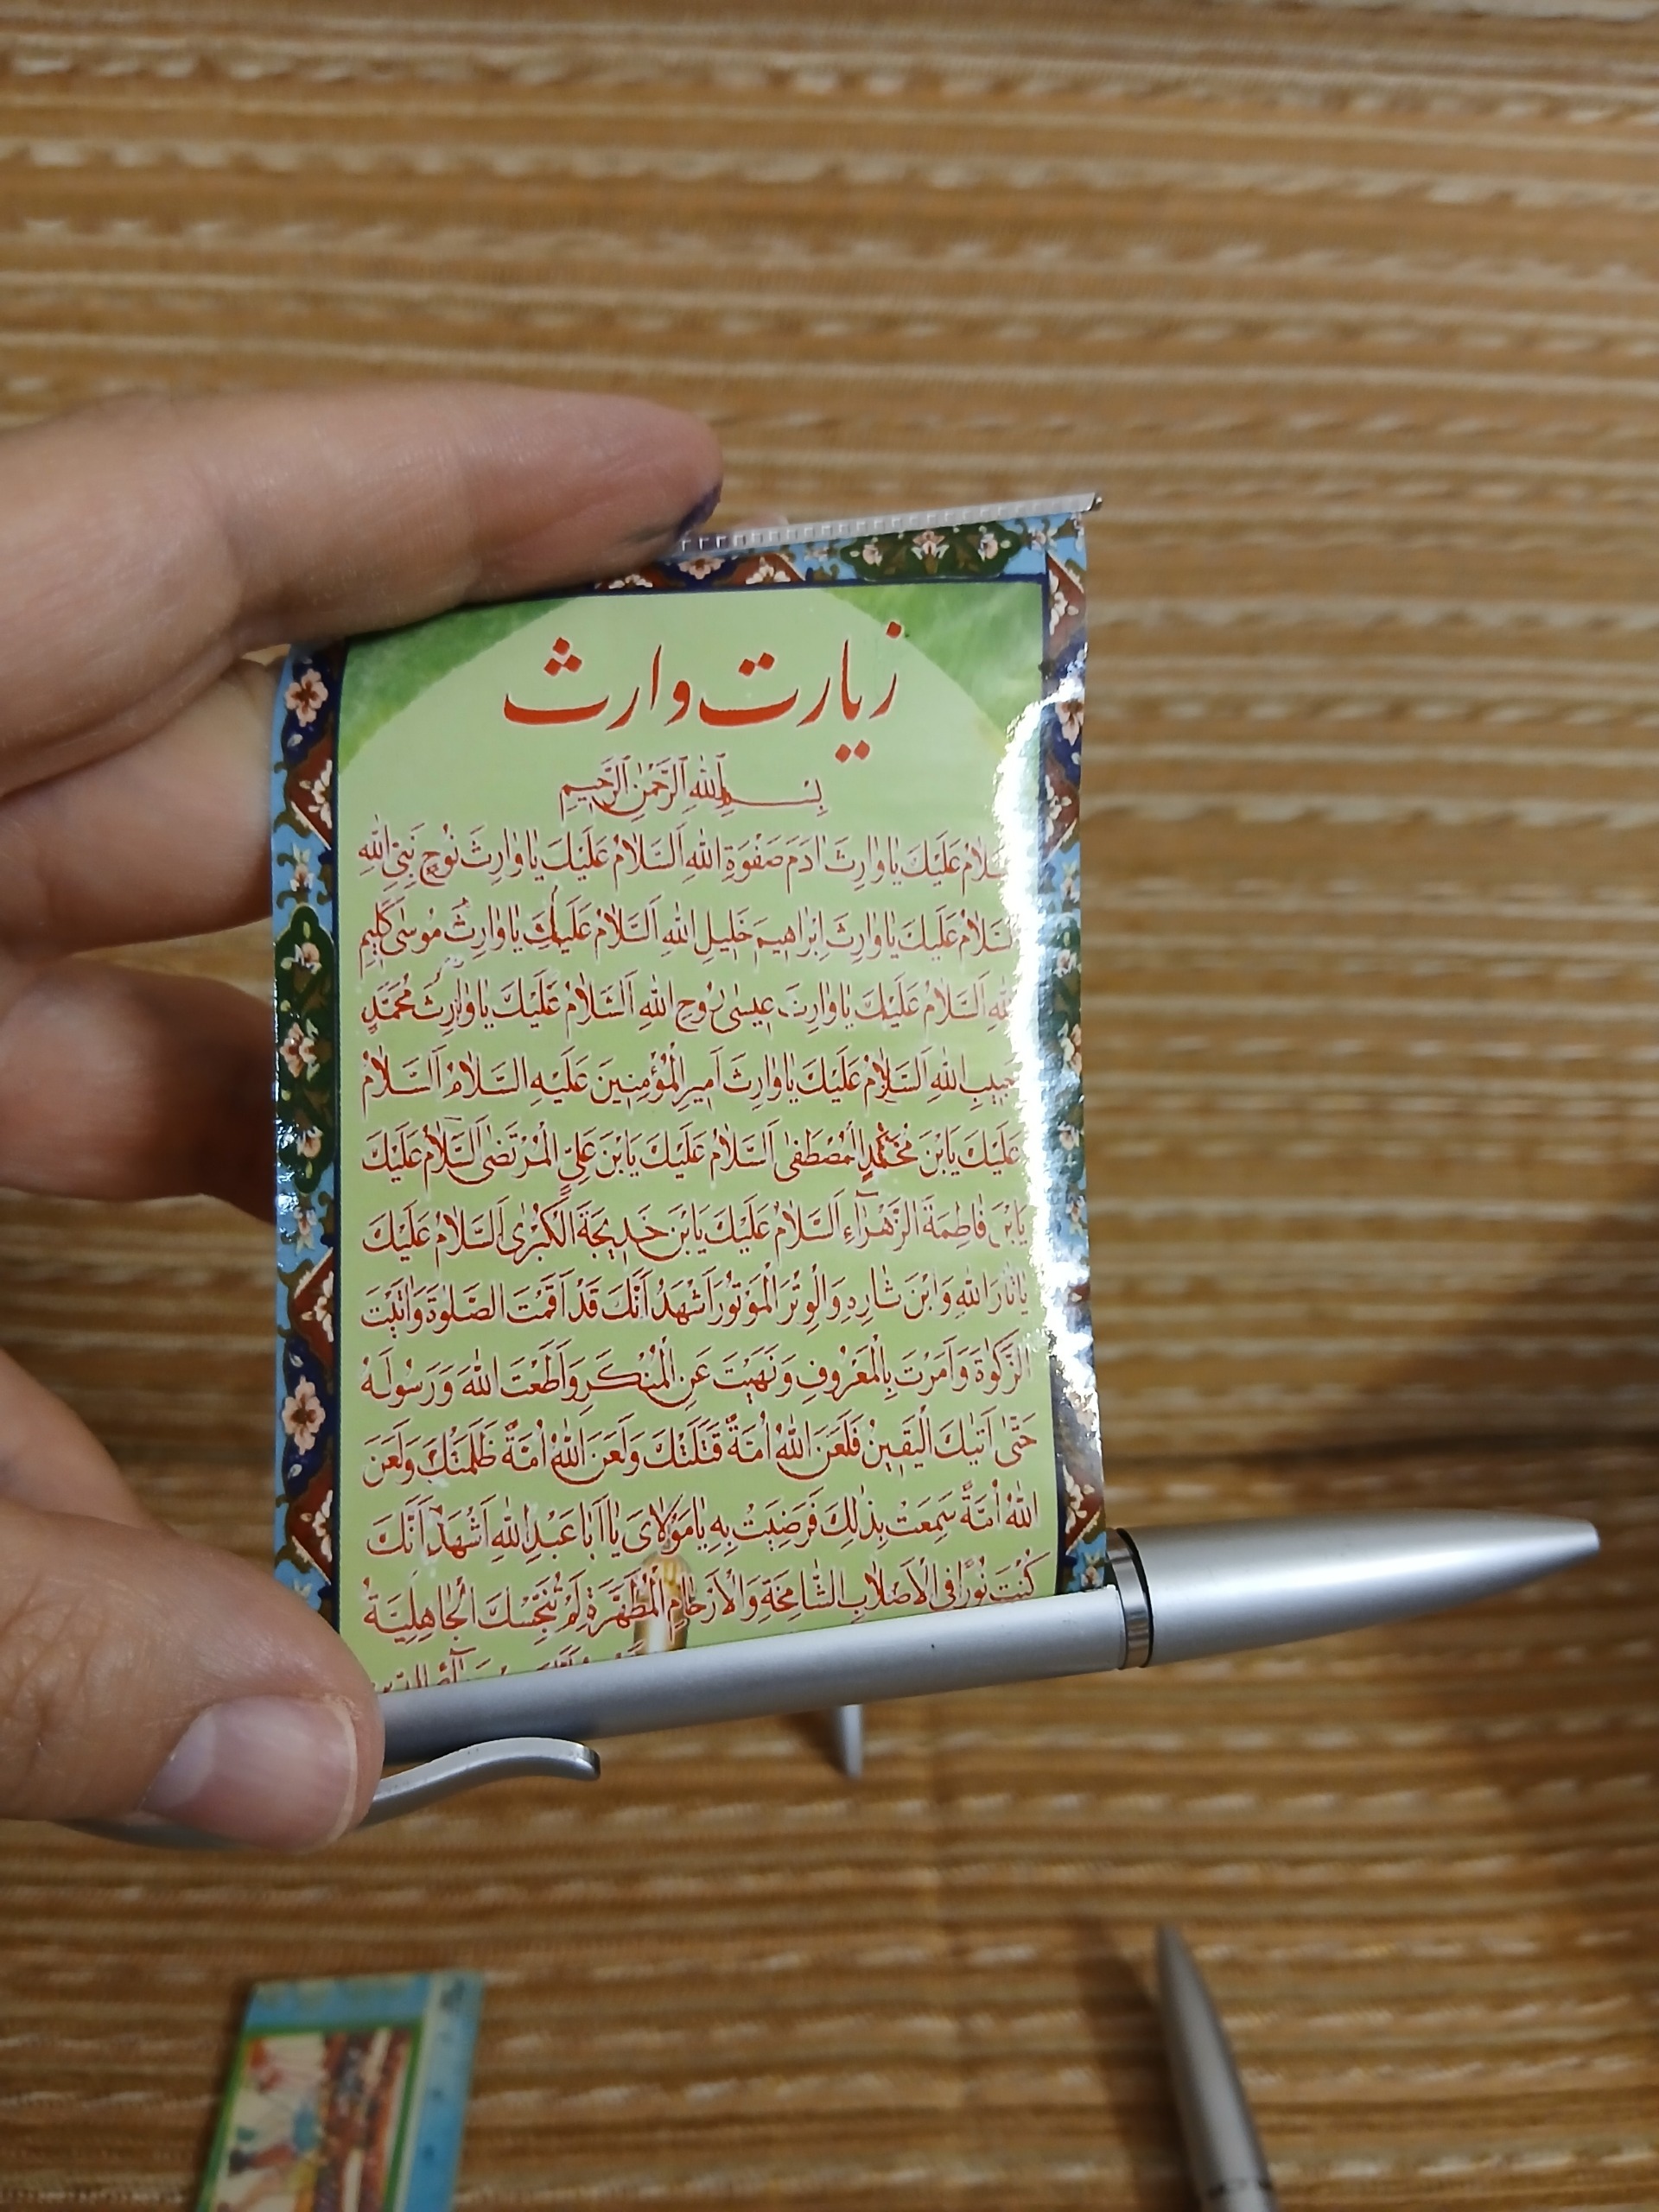 زیارت وارث
بِسْمِ اللهِ الرَّحْمٰنِ الرَّحیمِ
عَلَیْكَ یٰا وٰارِثَ اٰدَمَ صَفْوَةِ اللهِ اَلسَّلاٰمُ عَلَیْكَ یٰا وٰارِثَ نُوحٍ نَبِیِّ اللهِ
عَلَیْكَ یٰا وٰارِثَ اِبْرٰاهیمَ خَلیلِ اللهِ اَلسَّلاٰمُ عَلَیْكَ یٰا وٰارِثَ مُوسٰی کَلیمِ
اَلسَّلاٰمُ عَلَیْكَ یٰا وٰارِثَ عیسٰی رُوحِ اللهِ اَلسَّلاٰمُ عَلَیْكَ یٰا وٰارِثَ مُحَمَّدٍ
حَبیبِ اللهِ اَلسَّلاٰمُ عَلَیْكَ یٰا وٰارِثَ اَمیرِ الْمُؤْمِنینَ عَلَیْهِ السَّلاٰمُ اَلسَّلاٰمُ
عَلَیْكَ یَابْنَ مُحَمَّدٍ الْمُصْطَفٰی اَلسَّلاٰمُ عَلَیْكَ یَابْنَ عَلِیٍّ الْمُرْتَضٰی اَلسَّلاٰمُ عَلَیْكَ
یَابْنَ فٰاطِمَةَ الزَّهْرٰاءِ اَلسَّلاٰمُ عَلَیْكَ یَابْنَ خَدیجَةَ الْکُبْرٰی اَلسَّلاٰمُ عَلَیْكَ
یٰا ثٰارَ اللهِ وَابْنَ ثٰارِهِ وَالْوِتْرَ الْمَوْتُورَ اَشْهَدُ اَنَّكَ قَدْ اَقَمْتَ الصَّلوٰةَ وَاٰتَیْتَ
الزَّکوٰةَ وَاَمَرْتَ بِالْمَعْرُوفِ وَنَهَیْتَ عَنِ الْمُنْکَرِ وَاَطَعْتَ اللهَ وَرَسُولَهُ
حَتّٰی اَتٰیكَ الْیَقینُ فَلَعَنَ اللهُ اُمَّةً قَتَلَتْكَ وَلَعَنَ اللهُ اُمَّةً ظَلَمَتْكَ وَلَعَنَ
اللهُ اُمَّةً سَمِعَتْ بِذٰلِكَ فَرَضِیَتْ بِهِ یٰا مَوْلاٰیَ یٰا اَبٰا عَبْدِ اللهِ اَشْهَدُ اَنَّكَ
کُنْتَ نُورًا فِی الْاَصْلاٰبِ الشّٰامِخَةِ وَالْاَرْحٰامِ الْمُطَهَّرَةِ لَمْ تُنَجِّسْكَ الْجٰاهِلِیَّةُ